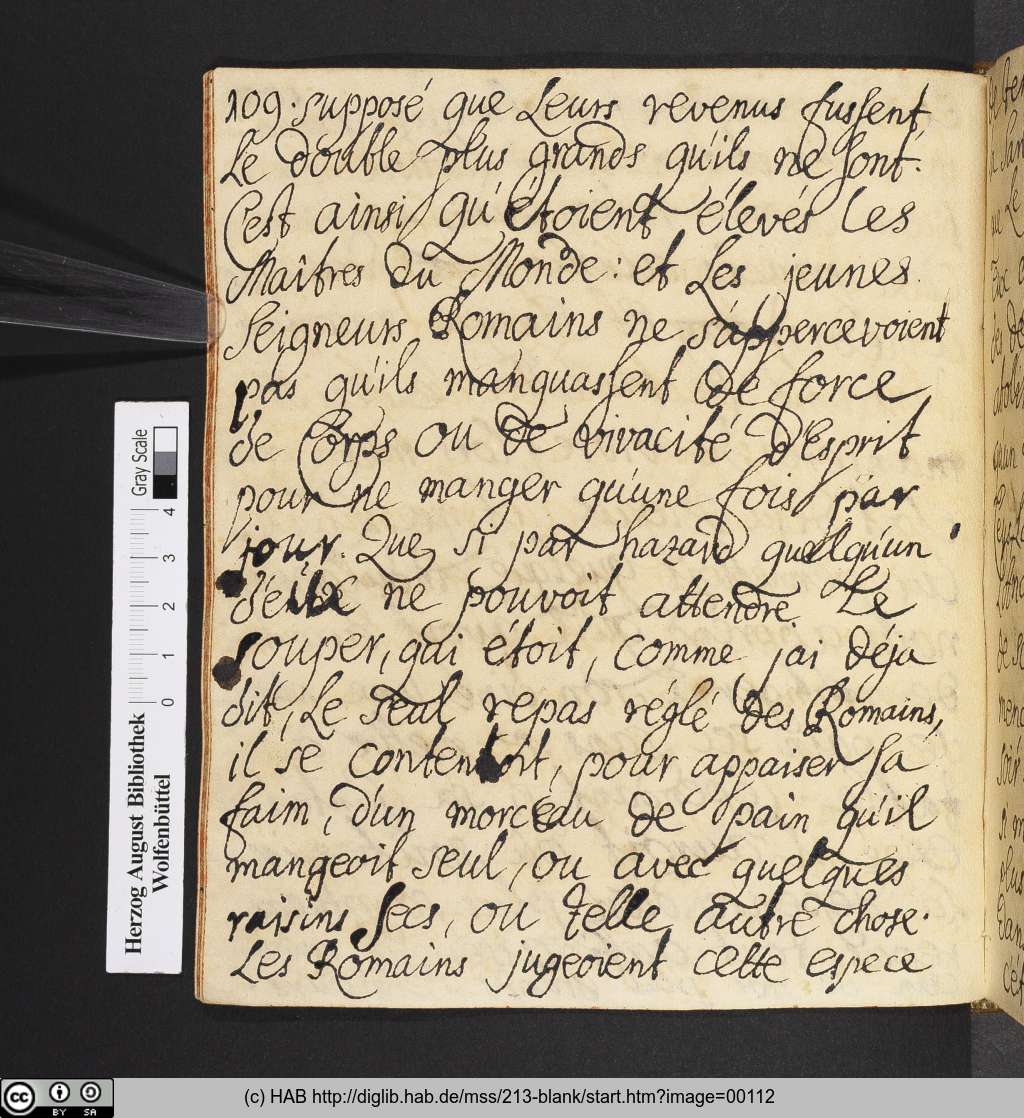 109. supposé que Leurs revenus fussent
Le double plus grands qu'ils ne sont.
C'est ainsi qu'étoient élevés les
Maîtres du Monde: et Les jeunes
Seigneurs Romains ne s'appercevoient
pas qu'ils manquassent de force
de Corps ou de vivacité d'Esprit
pour ne manger qu'une fois par
jour. Que si par hazard quelqu'un
d'eux ne pouvoit attendre Le
souper, qui étoit, comme j'ai déja
dit, Le seul repas réglé des Romains,
il se contentoit, pour appaiser sa
faim, d'un morceau de pain qu'il
mangeoit seul, ou avec quelques
raisins secs, ou telle autre chose.
Les Romains jugeoient cette espece
Herzog August Bibliothek
Wolfenbüttel
0 1 2 3 4
Gray Scale
cc BY SA
(c) HAB http://diglib.hab.de/mss/213-blank/start.htm?image=00112